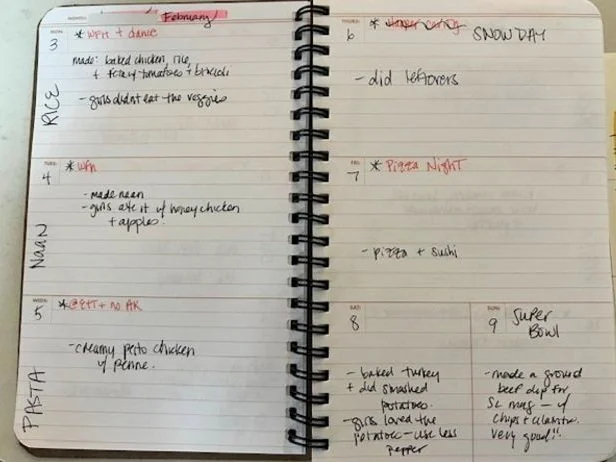 February
MON
3
* WFH + dance
made: baked chicken, rice,
+ feta w/ tomatoes + broccoli
- girls didn't eat the veggies
RICE
TUES
4
* WFH
- made naan
- girls ate it w/ honey chicken
+ apples.
NAAN
WEDS
5
- creamy pesto chicken
w/ penne.
PASTA
THURS
6
* SNOW DAY
- did leftovers
FRI
7
* Pizza Night
- pizza + sushi
SAT
8
- baked turkey
+ did smashed
potatoes.
- girls loved the
potatoes - use less
pepper
SUN
9
Super
Bowl
- made a ground
beef dip for
SC mag - w/
chips + cilantro.
very good!!